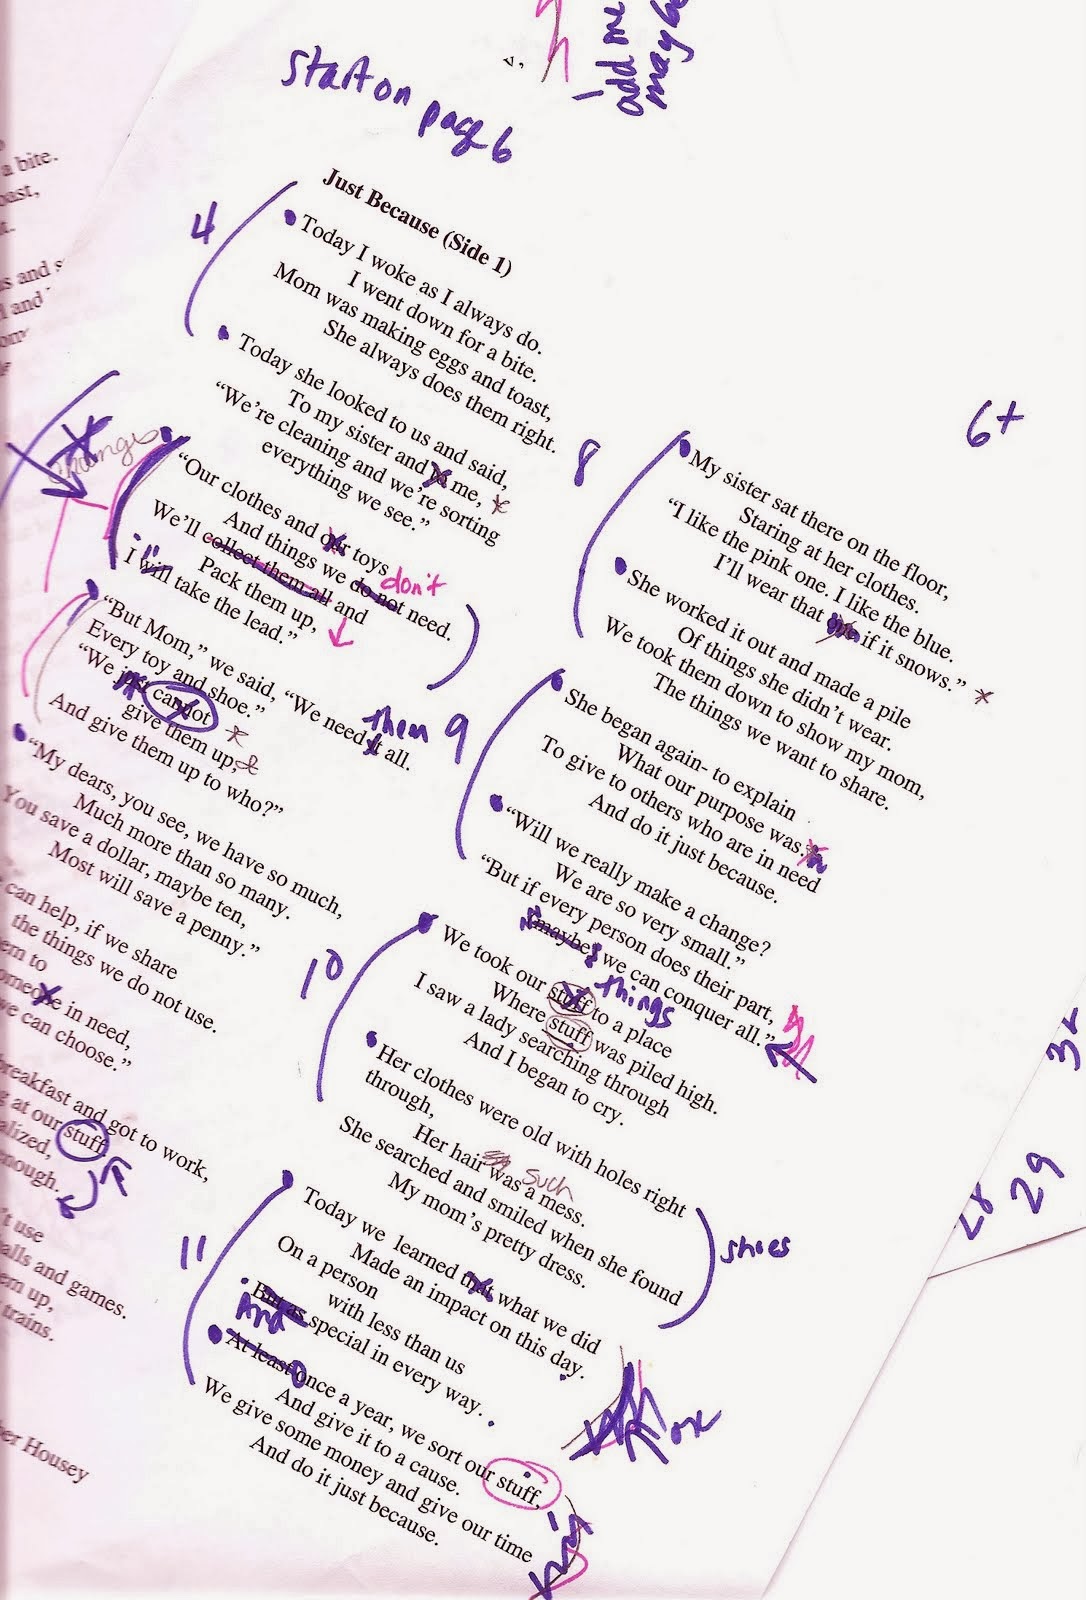 add me
maybe
start on
page 6
Just Because (Side 1)
4
Today I woke as I always do.
I went down for a bite.
Mom was making eggs and toast,
She always does them right.
Today she looked to us and said,
To my sister and me,
“We’re cleaning and we’re sorting
everything we see.”
changes
“Our clothes and our toys
And things we do not need.
don't
We’ll collect them all and
Pack them up,
I will take the lead.”
“But Mom,” we said, “We need it all.
them
Every toy and shoe.”
“We just cannot
give them up,
And give them up to who?”
“My dears, you see, we have so much,
Much more than so many.
You save a dollar, maybe ten,
Most will save a penny.”
can help, if we share
the things we do not use.
someone in need,
we can choose.”
breakfast and got to work,
at our stuff.
enough.
use
balls and games.
them up,
trains.
Housey
6+
8
My sister sat there on the floor,
Staring at her clothes.
“I like the pink one. I like the blue.
I’ll wear that one if it snows.”
She worked it out and made a pile
Of things she didn’t wear.
We took them down to show my mom,
The things we want to share.
9
She began again- to explain
What our purpose was,
To give to others who are in need
And do it just because.
“Will we really make a change?
We are so very small.”
“But if every person does their part,
maybe we can conquer all.”
10
We took our stuff to a place
things
Where stuff was piled high.
I saw a lady searching through
And I began to cry.
Her clothes were old with holes right
through,
Her hair was a mess.
such
She searched and smiled when she found
My mom’s pretty dress.
shoes
11
Today we learned that what we did
Made an impact on this day.
On a person
with less than us
But as special in every way.
And
At least once a year, we sort our stuff,
And give it to a cause.
We give some money and give our time
And do it just because.
or
28
29